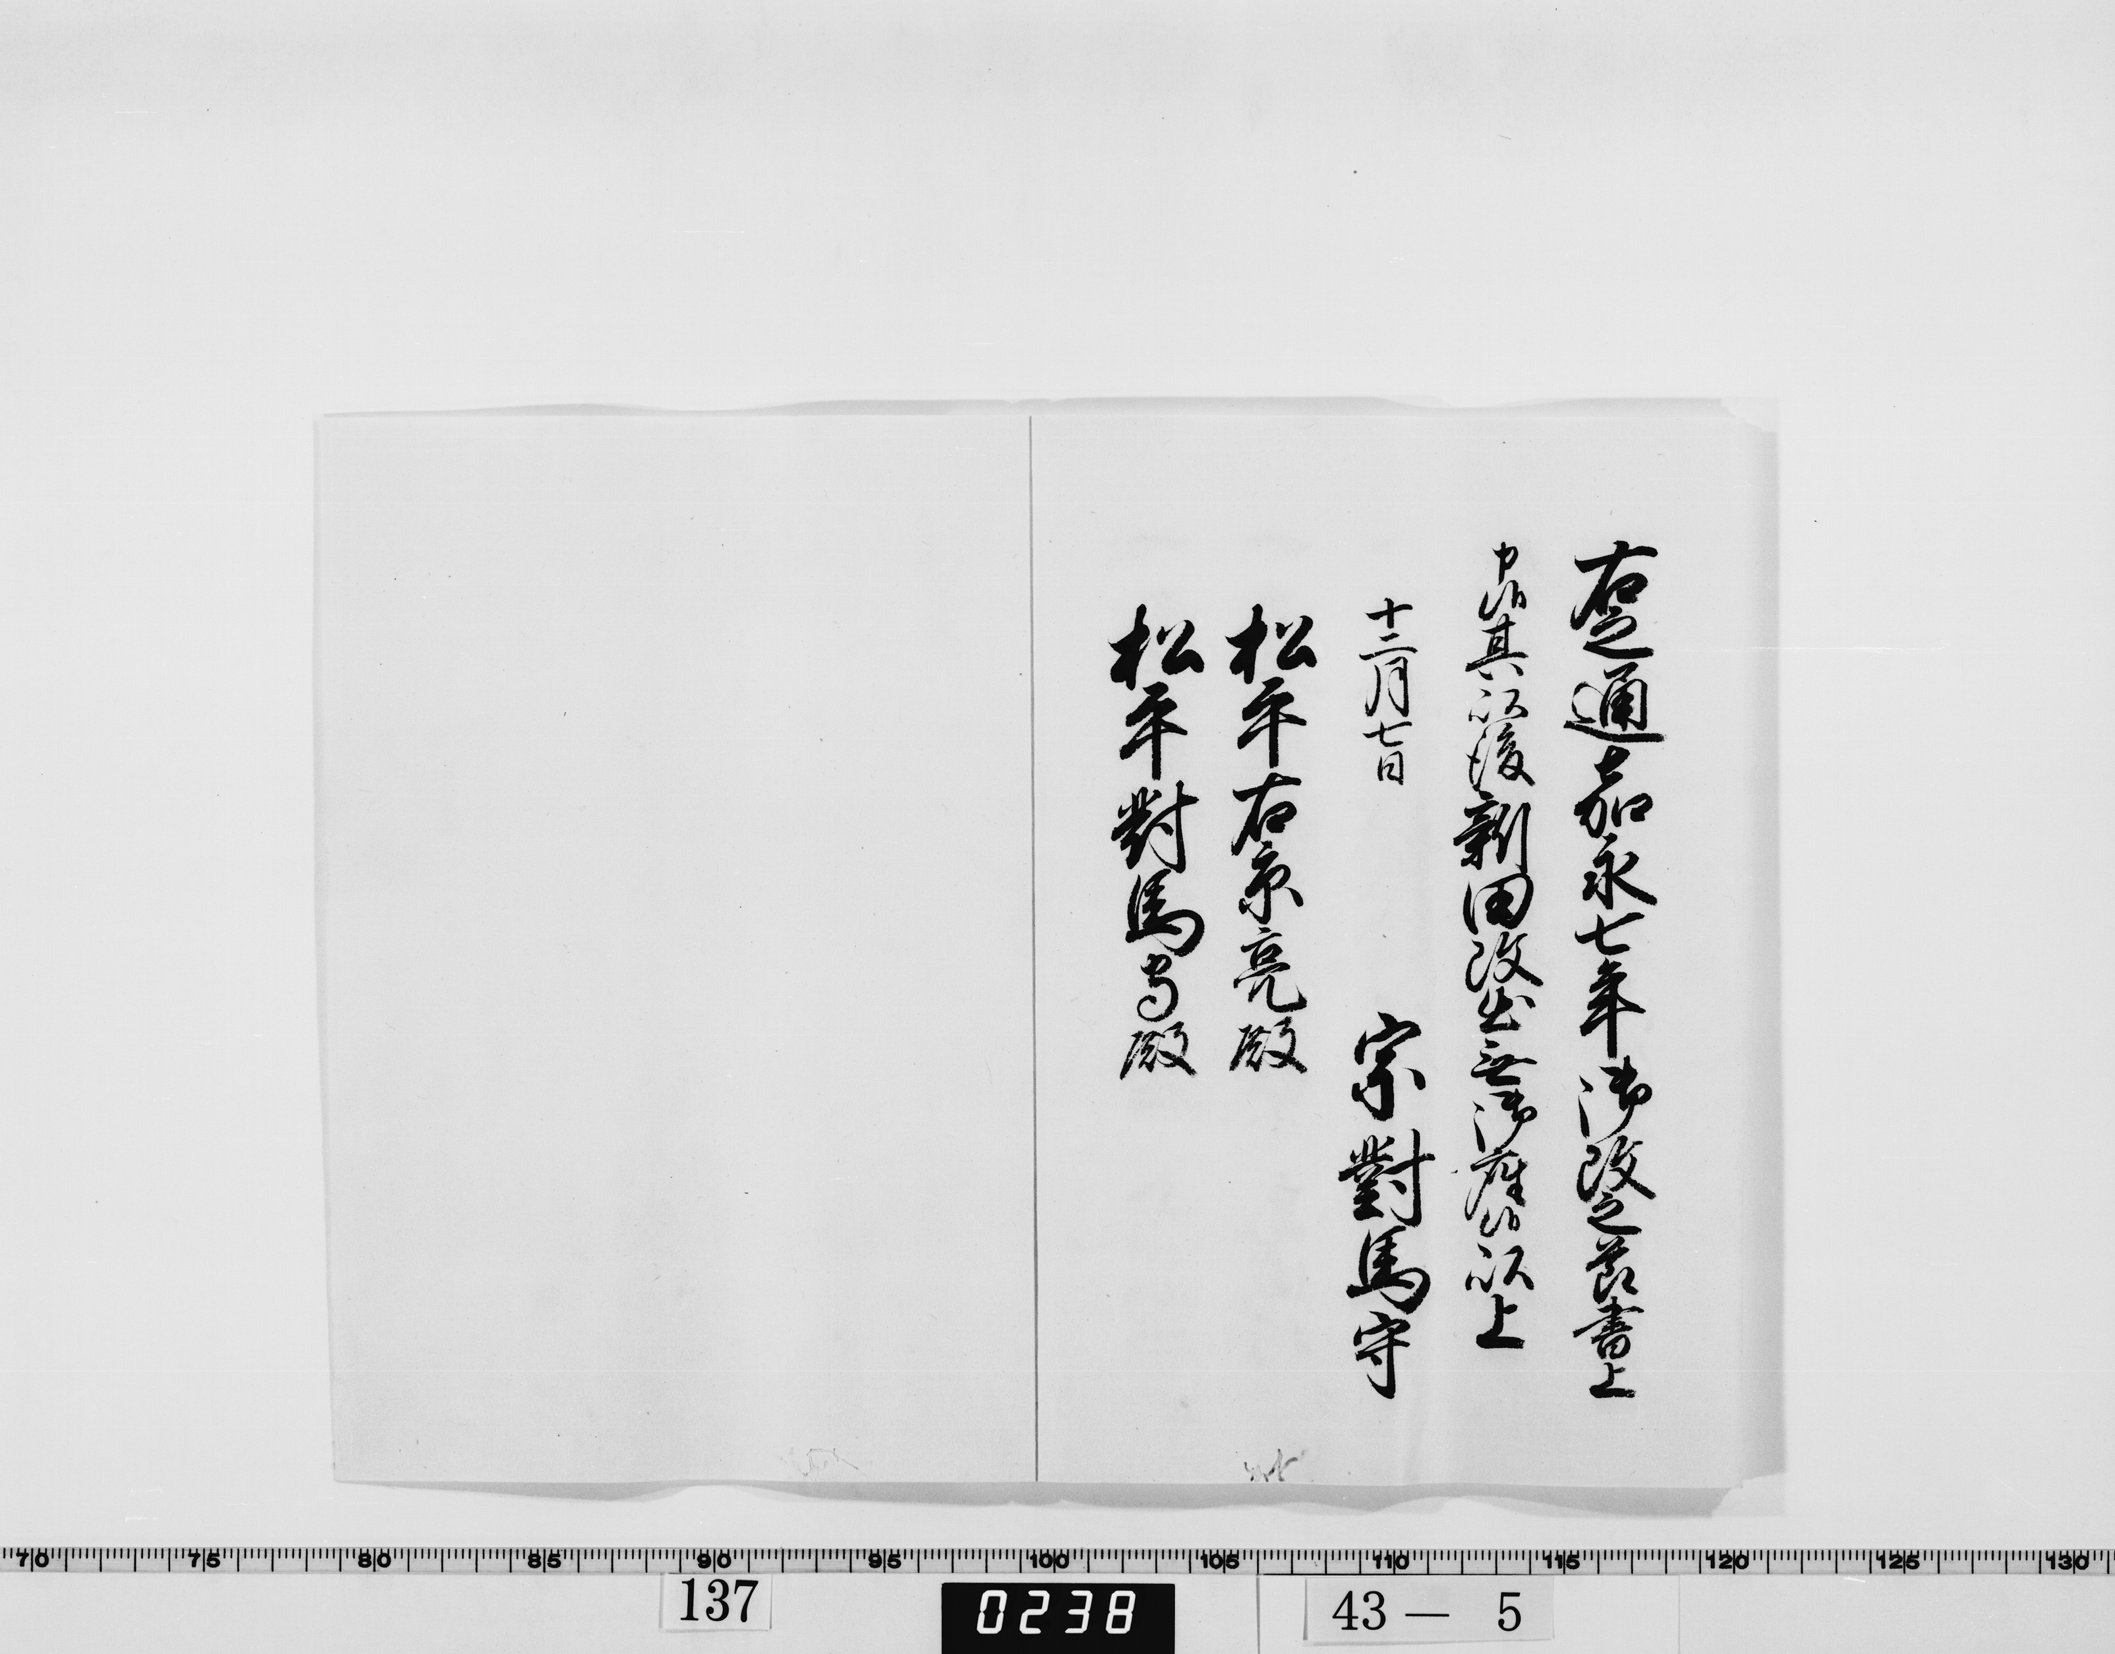 右之通嘉永七年御改之節書上
申候其以後新田改出無御座候以上
十二月七日
宗對馬守
松平右京亮殿
松平對馬守殿
70 75 80 85 90 95 100 105 110 115 120 125 130
137
0238
43 — 5